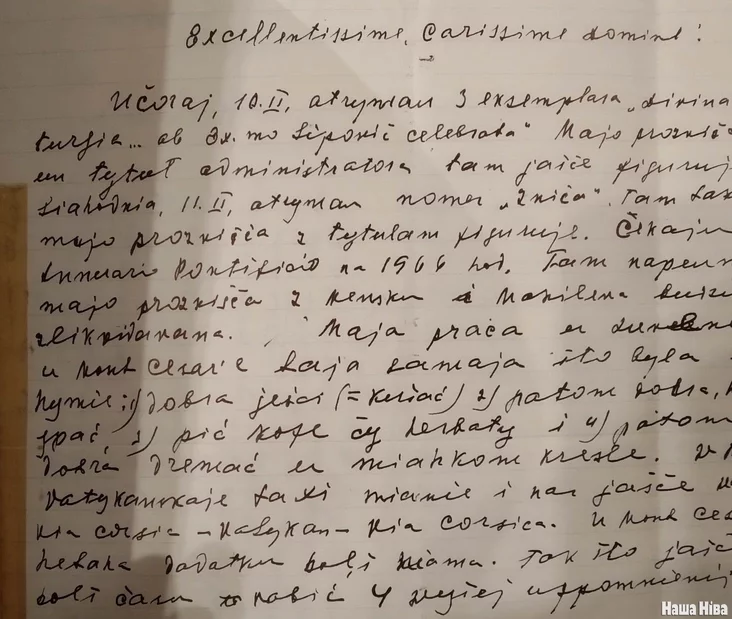 Excellentissime, Carissime Domine!
Učoraj, 10.II, atrymau 3 eksemplara „Divina
turgia... ab Ex.mo Sipovič celebrata" Majo prozvišč
en tytuł administratora tam jašče figuruj
Siahodnia, 11.II, atrymau nomer „Zniča". Tam tak
majo prozvišča z tytulam figuruje. Čekaju
Annuario Pontificio na 1966 hod. Tam napeun
majo prozvišča z Mensku i Mohilena
zlikvidavana. Maja praca u
u Mont Cesar'e taja samaja što byla
hymie: 1) dobra jeści (= kušać) 2) patom dobra,
spać, 3) pić kofe čy herbaty i 4) patom
dobra dremać u miahkom kresle.
Vatykanskaje taxi mianie i nas jašče
via Corsica – Vatykan – via Corsica. U Mont Ces
hetaha dodatku bolš niama. Tak što jašč
bolš času robić 4 vyšej uspomnienyj
Наша Ніва